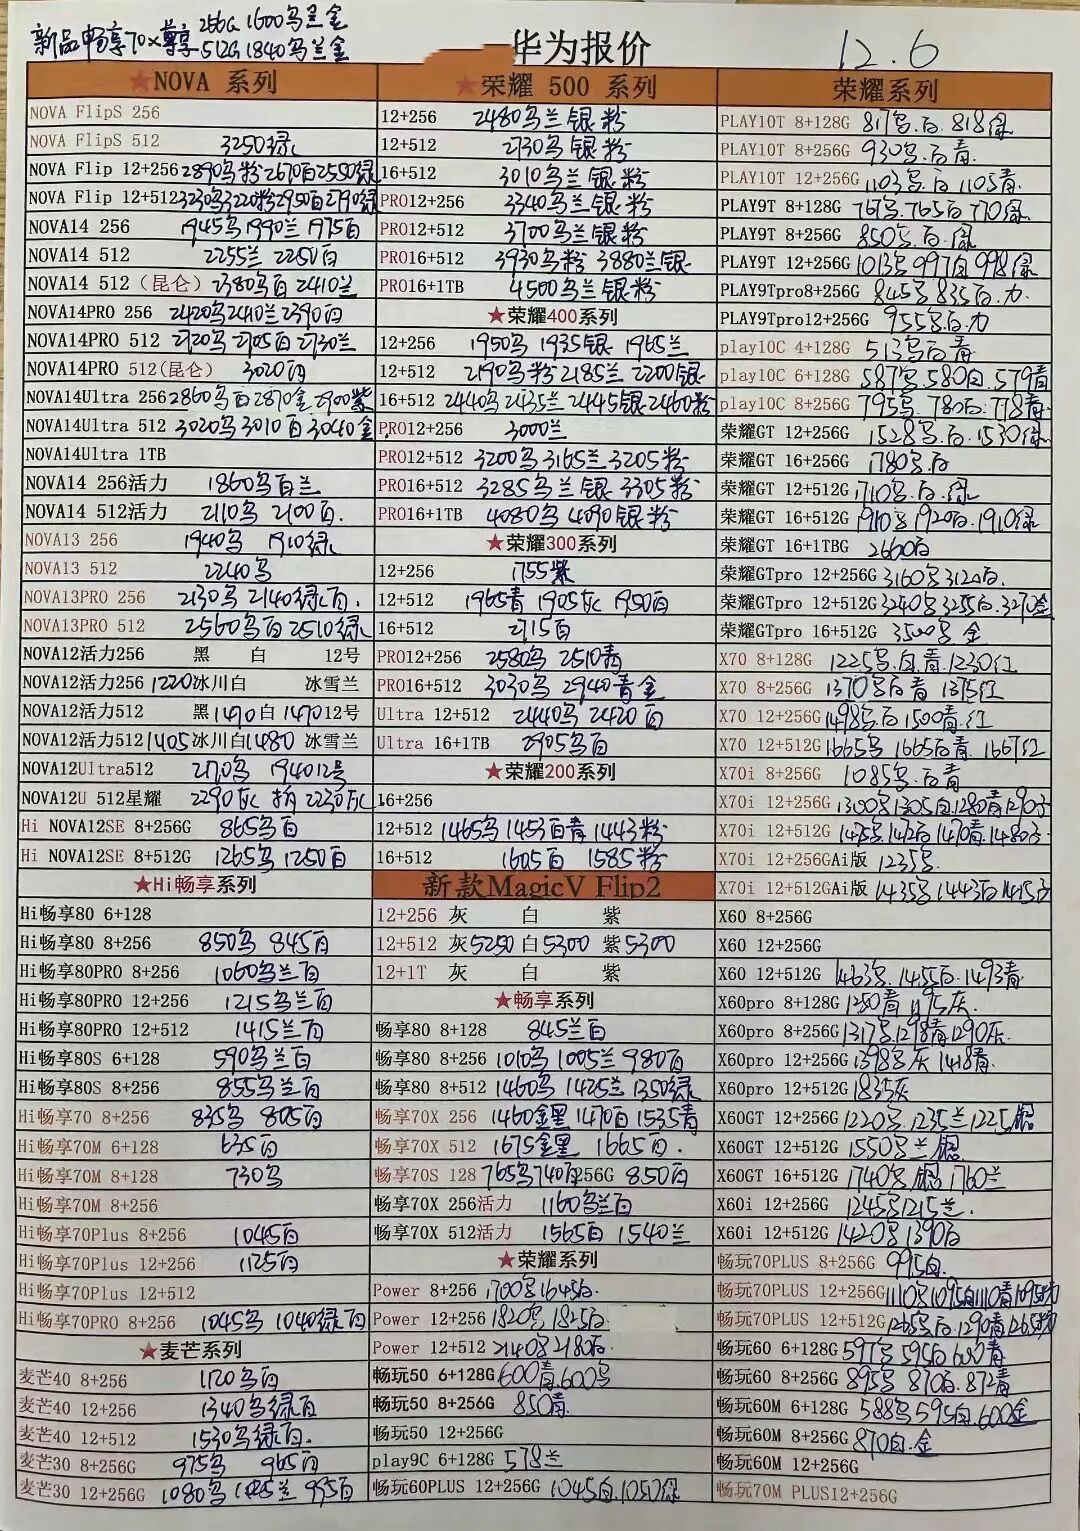 新品畅享70X尊享 256G 1600乌兰金
512G 1840乌兰金
华为报价
12.6
★NOVA 系列
NOVA FlipS 256
NOVA FlipS 512 3250绿
NOVA Flip 12+256 2890乌粉 2670白 2550绿
NOVA Flip 12+512 3230乌 3220粉 2950白 2790绿
NOVA14 256 1945乌 1990兰 1975白
NOVA14 512 2255兰 2250白
NOVA14 512（昆仑） 2380乌白 2410兰
NOVA14PRO 256 2420乌 2410兰 2390白
NOVA14PRO 512 2720乌 2705白 2730兰
NOVA14PRO 512(昆仑) 3020白
NOVA14Ultra 256 2860乌白 2870金 2900紫
NOVA14Ultra 512 3020乌 3010白 3040金
NOVA14Ultra 1TB
NOVA14 256活力 1860乌白兰
NOVA14 512活力 2110乌 2100白.
NOVA13 256 1940乌 1910绿
NOVA13 512 2240乌
NOVA13PRO 256 2130乌 2140绿白.
NOVA13PRO 512 2560乌白 2510绿
NOVA12活力256 黑 白 12号
NOVA12活力256 1220冰川白 冰雪兰
NOVA12活力512 黑1470白 1470 12号
NOVA12活力512 1405冰川白1480 冰雪兰
NOVA12Ultra512 2170乌 1940 12号
NOVA12U 512星耀 2290灰 拆 2230灰
Hi NOVA12SE 8+256G 865乌白
Hi NOVA12SE 8+512G 1265乌 1250白
★Hi畅享系列
Hi畅享80 6+128
Hi畅享80 8+256 850乌 845白
Hi畅享80PRO 8+256 1060乌兰白
Hi畅享80PRO 12+256 1215乌兰白
Hi畅享80PRO 12+512 1415兰白
Hi畅享80S 6+128 590乌兰白
Hi畅享80S 8+256 855乌兰白
Hi畅享70 8+256 835乌 805白
Hi畅享70M 6+128 635白
Hi畅享70M 8+128 730乌
Hi畅享70M 8+256
Hi畅享70Plus 8+256 1045白
Hi畅享70Plus 12+256 1125白
Hi畅享70Plus 12+512
Hi畅享70PRO 8+256 1045乌 1040绿白
★麦芒系列
麦芒40 8+256 1120乌白
麦芒40 12+256 1340乌绿白
麦芒40 12+512 1530乌绿白.
麦芒30 8+256G 975乌 965白
麦芒30 12+256G 1080乌 兰 白
★荣耀 500 系列
12+256 2480乌兰银粉
12+512 2730乌银粉
16+512 3010乌兰银粉
PRO12+256 3340乌兰银粉
PRO12+512 3700乌兰银粉
PRO16+512 3930乌粉 3880兰银
PRO16+1TB 4500乌兰银粉
★荣耀400系列
12+256 1950乌 1935银 1965兰
12+512 2190乌粉 2185兰 2200银
16+512 2440乌 2435兰 2445银 2460粉
PRO12+256 3000兰
PRO12+512 3200乌 3165兰 3205粉
PRO16+512 3285乌兰银 3305粉
PRO16+1TB 4080乌 4090银粉
★荣耀300系列
12+256 1755紫
12+512 1965青 1905灰 1950白
16+512 2715白
PRO12+256 2580乌 2510青
PRO16+512 3030乌 2940青金
Ultra 12+512 2440乌 2420白
Ultra 16+1TB 2905乌白
★荣耀200系列
16+256
12+512 1465乌 1453白青 1443粉
16+512 1605白 1585粉
新款MagicV Flip2
12+256 灰 白 紫
12+512 灰5250 白5300 紫5300
12+1T 灰 白 紫
★畅享系列
畅享80 8+128 845兰白
畅享80 8+256 1010乌 1005兰 980白
畅享80 8+512 1460乌 1425兰 1350绿
畅享70X 256 1460金黑 1470白 1535青
畅享70X 512 1675金黑 1665白.
畅享70S 128 765乌 740白 256G 850白
畅享70X 256活力 1160乌兰白
畅享70X 512活力 1565白 1540兰
★荣耀系列
Power 8+256 1700乌 1645白.
Power 12+256 1820乌 1825白.
Power 12+512 2140乌 2180白.
畅玩50 6+128G 600青.600乌
畅玩50 8+256G 850青.
畅玩50 12+256G
play9C 6+128G 578兰
畅玩60PLUS 12+256G 1045白.1050绿
荣耀系列
PLAY10T 8+128G 817乌.白.818绿
PLAY10T 8+256G 930乌.白青.
PLAY10T 12+256G 1103乌.白 1105青.
PLAY9T 8+128G 767乌.765白 770绿.
PLAY9T 8+256G 850乌.白.绿
PLAY9T 12+256G 1013乌 997白 998绿
PLAY9Tpro8+256G 845乌 835白.力
PLAY9Tpro12+256G 955乌白.力
play10C 4+128G 513乌白青
play10C 6+128G 587乌.580白.579青
play10C 8+256G 795乌.780白.778青
荣耀GT 12+256G 1528乌.白.1530绿
荣耀GT 16+256G 1780乌.白
荣耀GT 12+512G 1710乌.白.绿
荣耀GT 16+512G 1910乌 1920白.1910绿
荣耀GT 16+1TBG 2660白
荣耀GTpro 12+256G 3160乌 3120白.
荣耀GTpro 12+512G 3240乌 3255白.3270金
荣耀GTpro 16+512G 3500乌 金
X70 8+128G 1225乌.白.青.1230红
X70 8+256G 1370乌白青 1375红
X70 12+256G 1498乌白 1500青.红
X70 12+512G 1665乌 1665白青.1667红
X70i 8+256G 1085乌.白青
X70i 12+256G 1300乌 1305白 1280青 1290
X70i 12+512G 1475乌 1472白 1470青 1480
X70i 12+256GAi版 1235乌
X70i 12+512GAi版 1435乌 1443白 1415
X60 8+256G
X60 12+256G
X60 12+512G 1463乌.1455白.1493青
X60pro 8+128G 1250青 1195灰.
X60pro 8+256G 1317乌.1298青 1290灰.
X60pro 12+256G 1398乌灰 1418青.
X60pro 12+512G 1835灰
X60GT 12+256G 1220乌.1235兰 1225银
X60GT 12+512G 1550乌兰银.
X60GT 16+512G 1740乌.银 1760兰
X60i 12+256G 1245乌 1215兰.
X60i 12+512G 1420乌 1390白
畅玩70PLUS 8+256G 995白.
畅玩70PLUS 12+256G 1110乌 1095白 1110青 1095
畅玩70PLUS 12+512G 1265乌白.1290青 1265
畅玩60 6+128G 597乌 595白 680青
畅玩60 8+256G 895乌 870白.872青
畅玩60M 6+128G 588乌 595白.600金
畅玩60M 8+256G 870白.金
畅玩60M 12+256G
畅玩70M PLUS12+256G